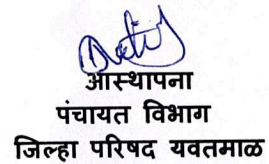 आस्थापना
पंचायत विभाग
जिल्हा परिषद यवतमाळ